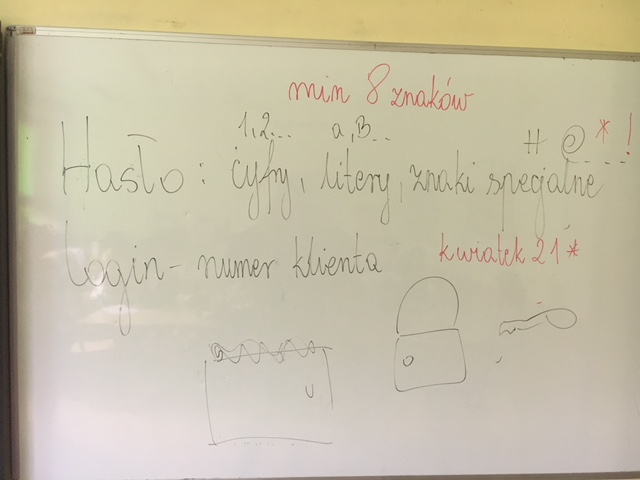 min 8 znaków
1,2... a,B... # @ * ...!
Hasło: cyfry, litery, znaki specjalne
Login - numer klienta
kwiatek 21*